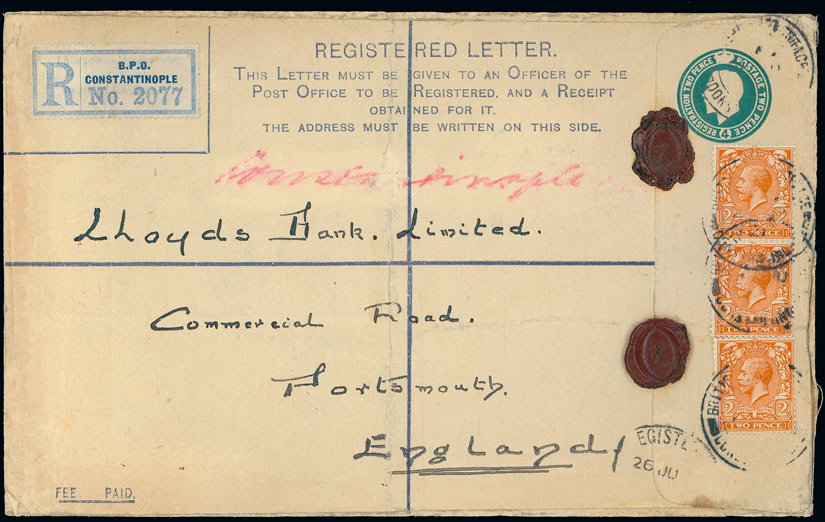 B.P.O.
CONSTANTINOPLE
R No. 2077
REGISTERED LETTER.
THIS LETTER MUST BE GIVEN TO AN OFFICER OF THE
POST OFFICE TO BE REGISTERED, AND A RECEIPT
OBTAINED FOR IT.
THE ADDRESS MUST BE WRITTEN ON THIS SIDE.
REGISTRATION TWO PENCE POSTAGE TWO PENCE
4
Constantinople
Lloyds Bank. Limited.
Commercial Road.
Portsmouth.
England
2 2
TWO PENCE
2
2 2
TWO PENCE
EGISTE
26 JU
FEE PAID.